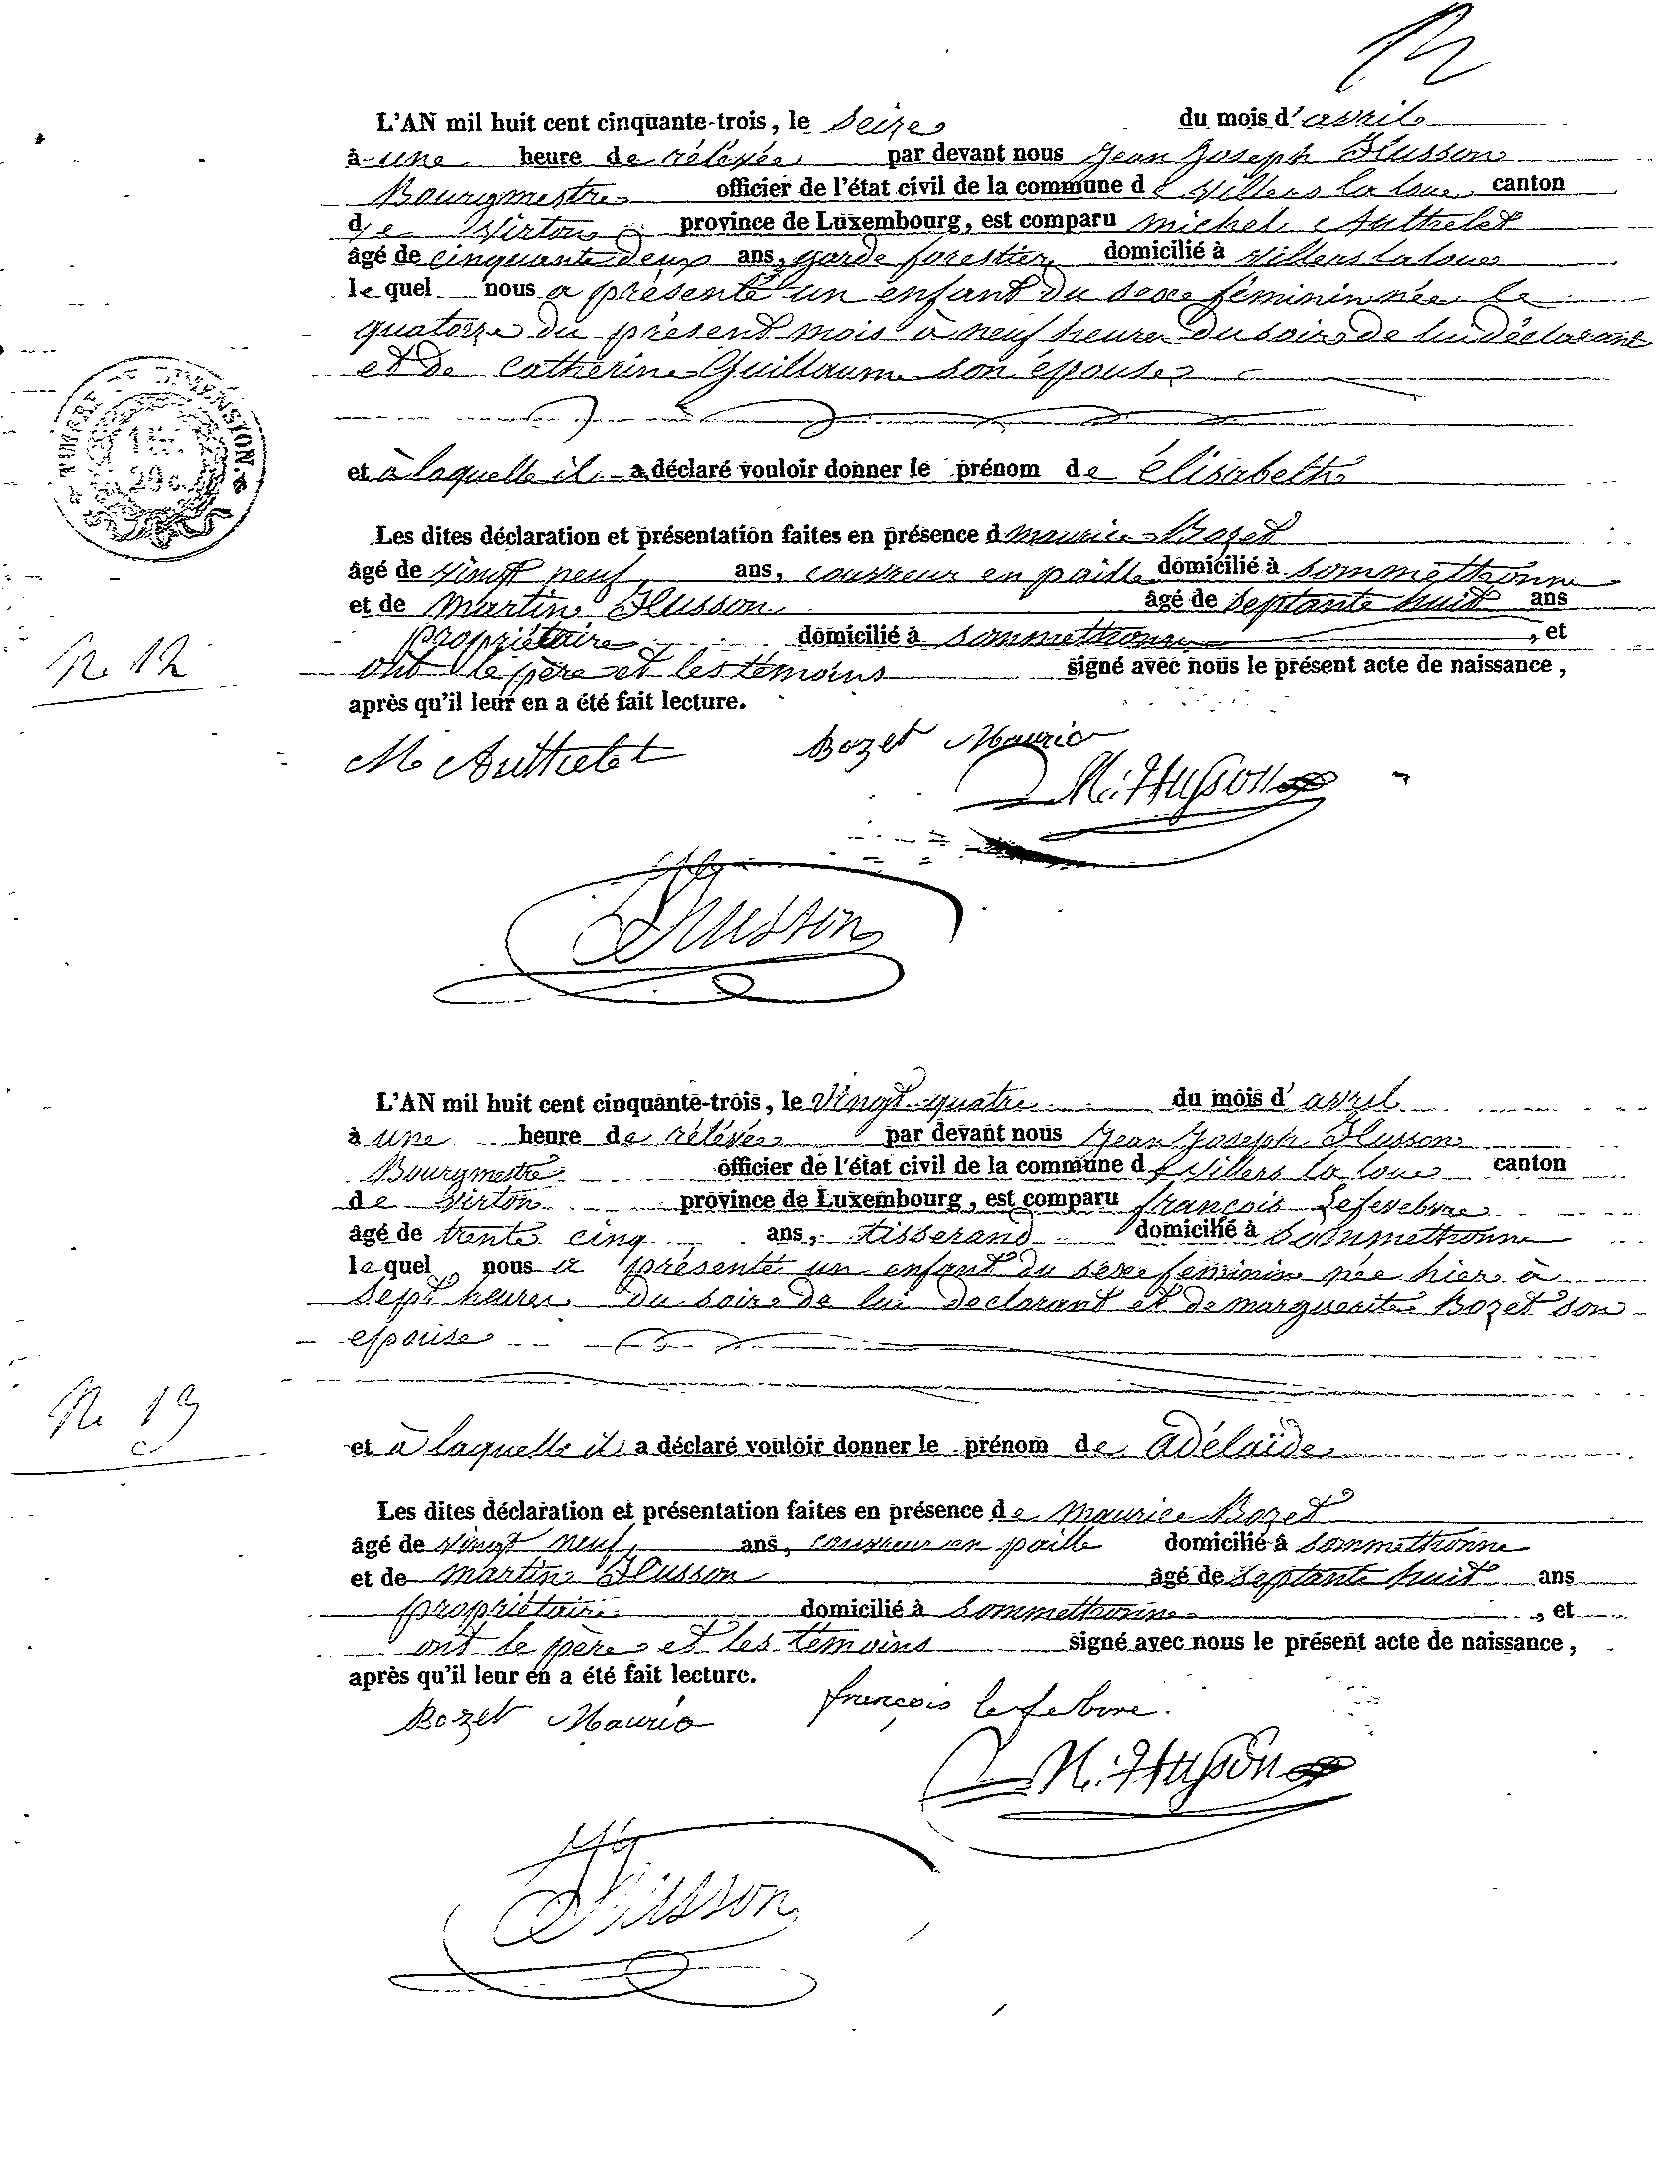 12
L'AN mil huit cent cinquante-trois, le seize du mois d'avril
à une heure de rélévée par devant nous Jean Joseph Husson
Bourgmestre officier de l'état civil de la commune de Villers la loue canton
de Virton province de Luxembourg, est comparu michel Authelet
âgé de cinquante deux ans, garde forestier domicilié à Villers la loue
le quel nous a présenté un enfant du sexe féminin née le
quatorze du présent mois à neuf heures du soir, de lui déclarant
et de Catherine Guillaume son épouse
TIMBRE DE DIMENSION.
et à laquelle il a déclaré vouloir donner le prénom de élisabeth
Les dites déclaration et présentation faites en présence d maurice Bozet
âgé de vingt neuf ans, couvreur en paille domicilié à Sommethonne
et de Martin Husson âgé de septante huit ans
propriétaire domicilié à Sommethonne, et
N. 12
ont le père et les témoins signé avec nous le présent acte de naissance,
après qu'il leur en a été fait lecture.
M Authelet Bozet Maurice
M. Husson
Husson
L'AN mil huit cent cinquante-trois, le vingt-quatre du mois d'avril
à une heure de rélévée par devant nous Jean Joseph Husson
Bourgmestre officier de l'état civil de la commune de Villers la loue canton
de Virton province de Luxembourg, est comparu françois Lefevebvre
âgé de trente cinq ans, tisserand domicilié à Sommethonne
le quel nous a présenté un enfant du sexe féminin née hier à
sept heures du soir de lui declarant et de marguerite Bozet son
epouse
N. 13
et à laquelle il a déclaré vouloir donner le prénom de adélaïde
Les dites déclaration et présentation faites en présence de maurice Bozet
âgé de vingt neuf ans, couvreur en paille domicilié à Sommethonne
et de martin Husson âgé de septante huit ans
propriétaire domicilié à Sommethonne, et
ont le père et les témoins signé avec nous le présent acte de naissance,
après qu'il leur en a été fait lecture.
Bozet Maurice françois lefebvre.
M. Husson
Husson